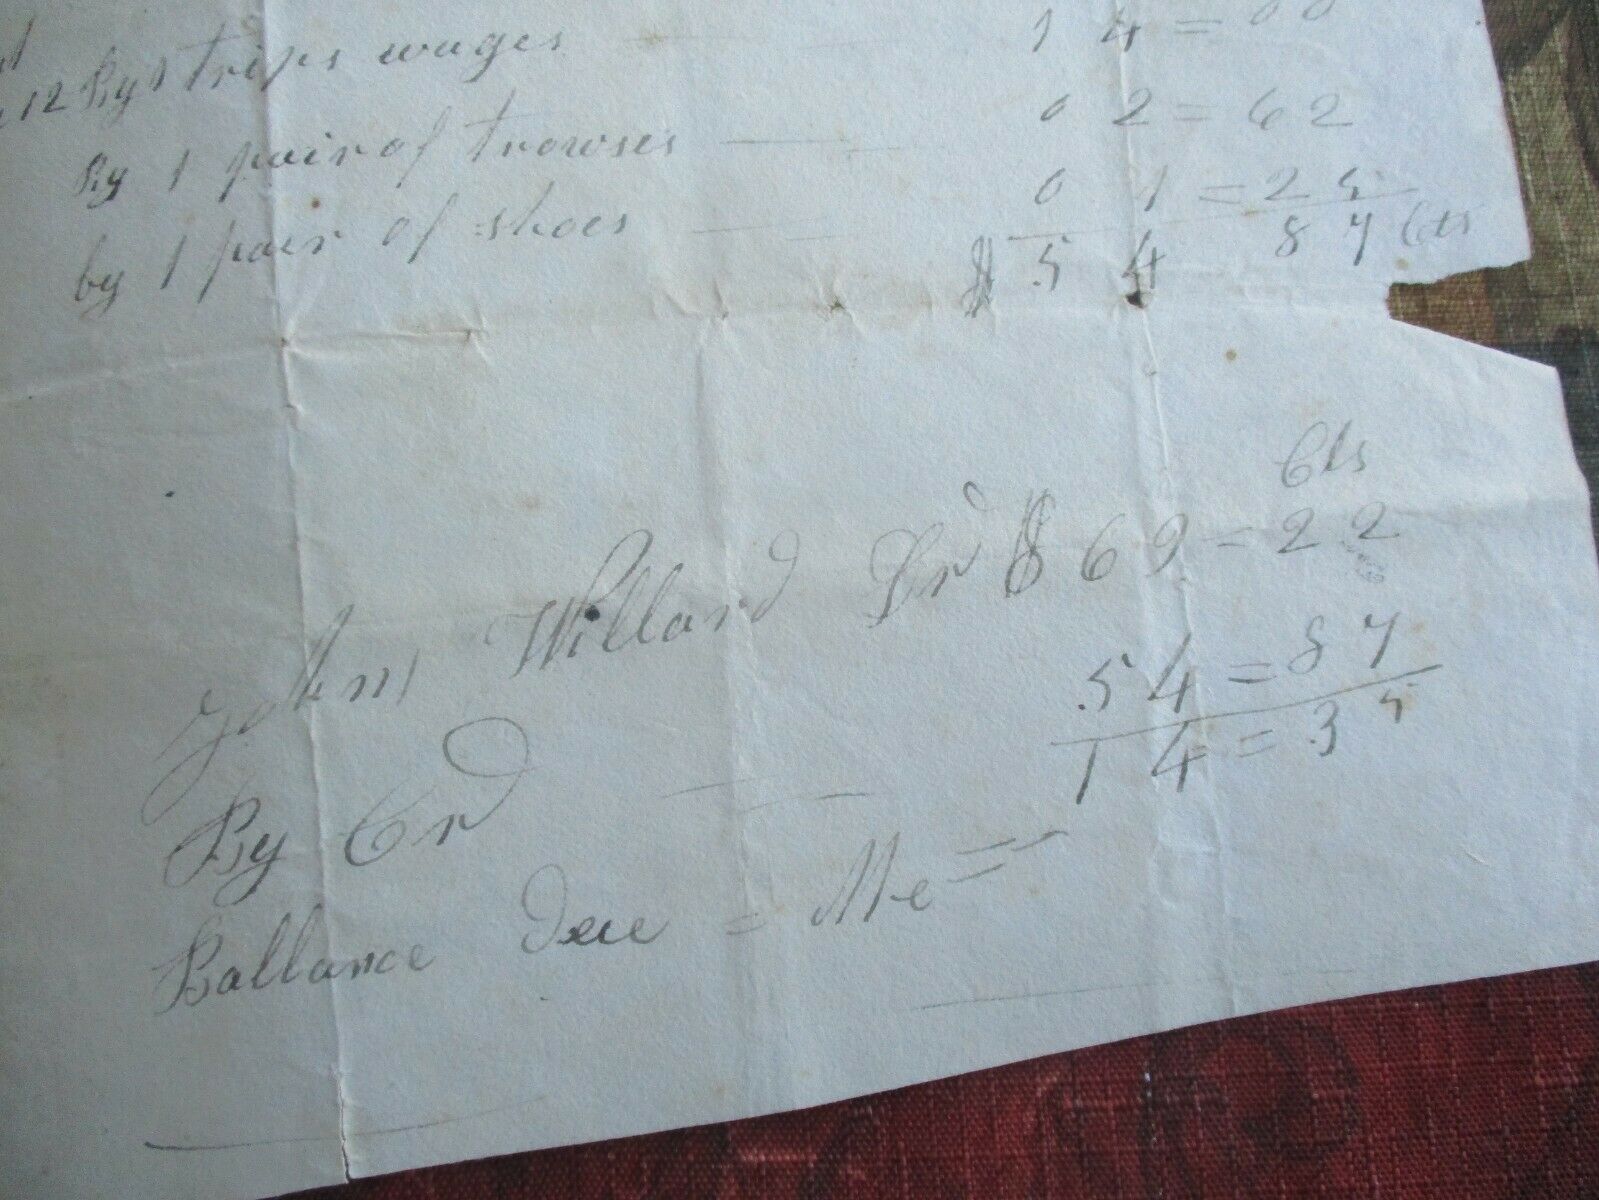 12 By 1 trips wages 14 = 00
By 1 pair of trowses 0 2 = 62
by 1 pair of shoes 0 1 = 25
$ 54 87 Cts
Cts
John Willard Dr $ 69 = 22
By Crd 54 = 87
14 = 35
Ballance Due = Me =